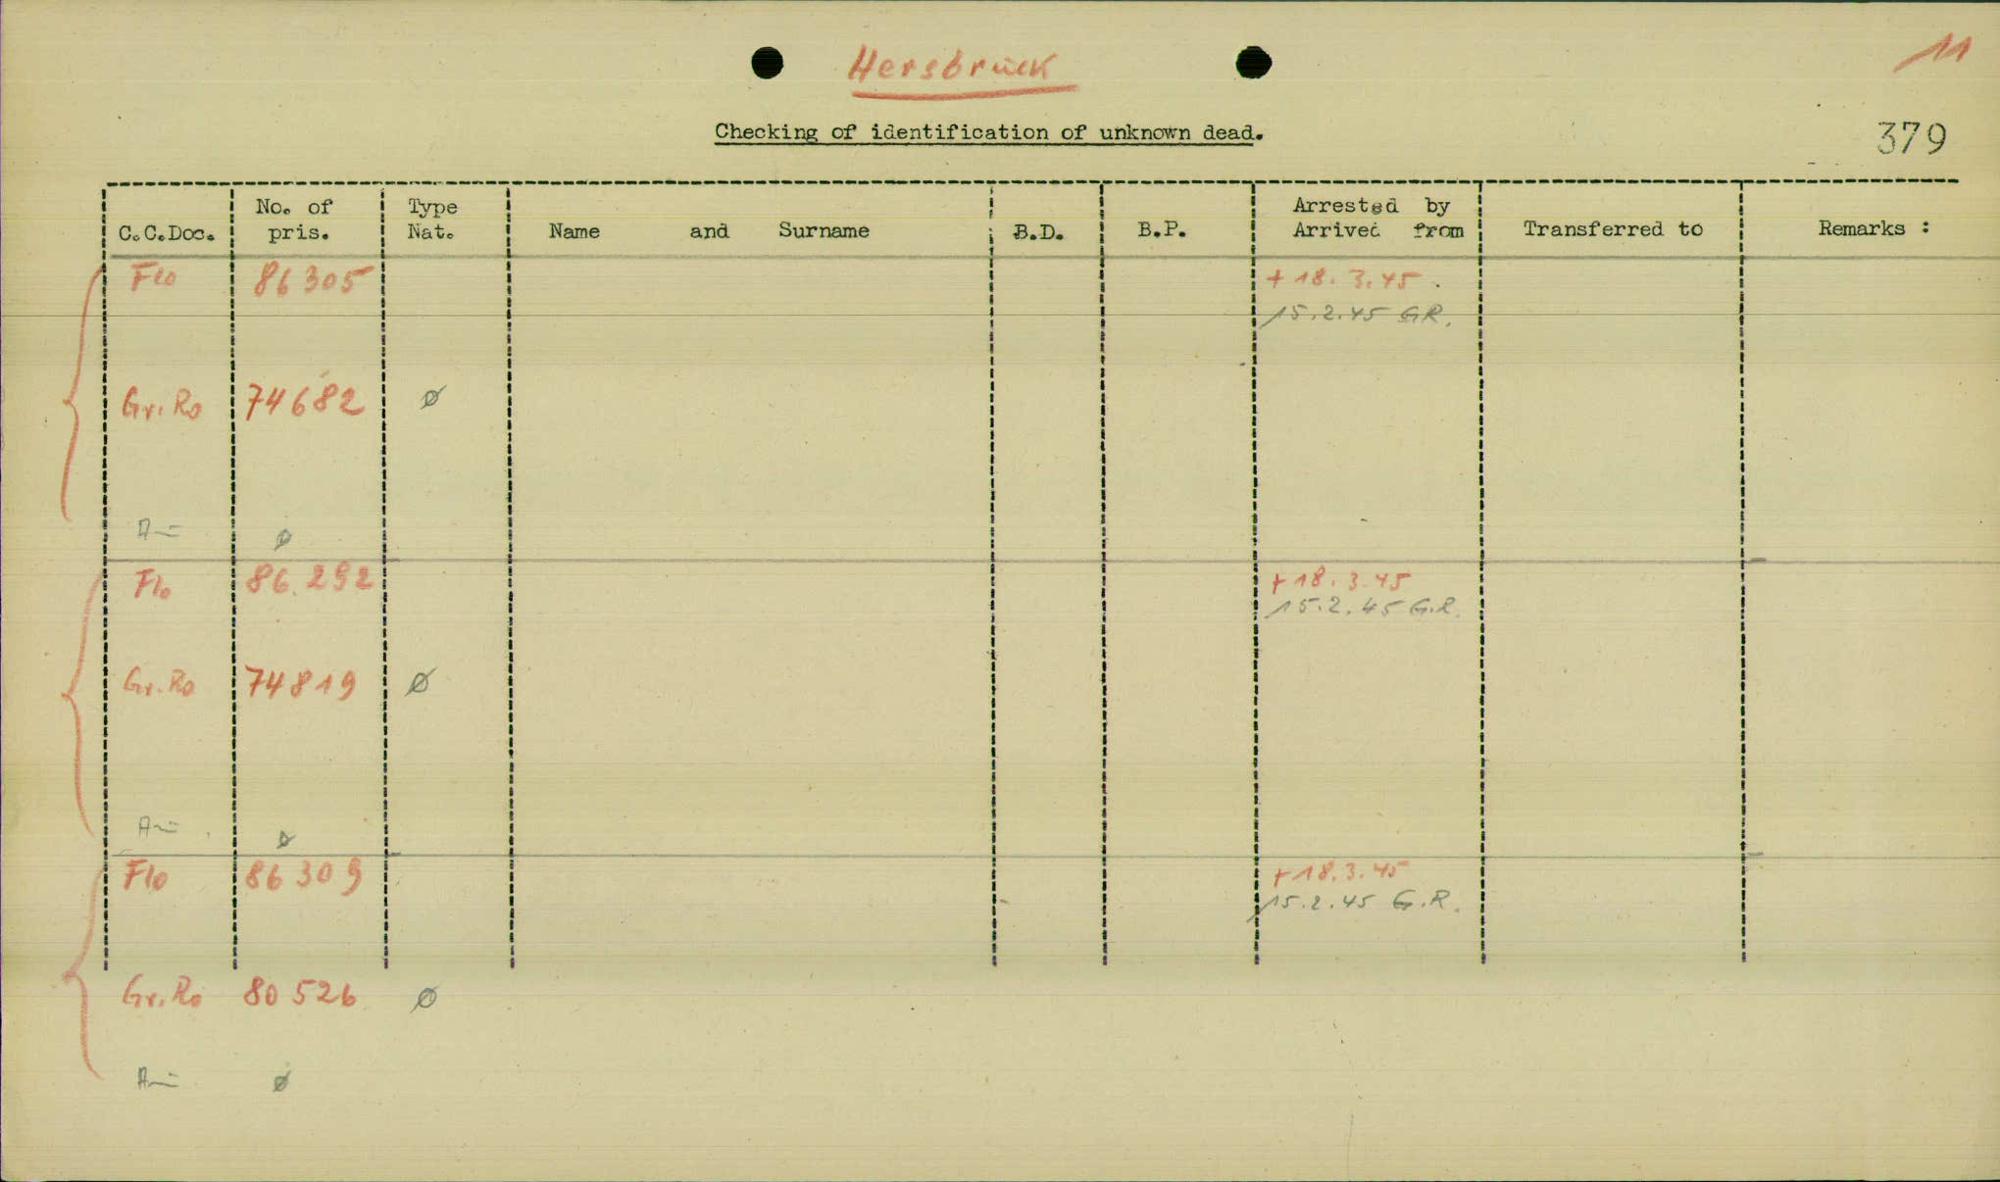 Hersbruck
11
Checking of identification of unknown dead.
379
C.C.Doc. No. of pris. Type Nat. Name and Surname B.D. B.P. Arrested by Arrived from Transferred to Remarks :
Flo 86305 + 18.3.45.
15.2.45 GR.
Gr.Ro 74682 ø
ø
Flo 86.292 + 18.3.45
15.2.45 G.R.
Gr.Ro 74819 ø
ø
Flo 86309 + 18.3.45
15.2.45 G.R.
Gr.Ro 80526 ø
ø